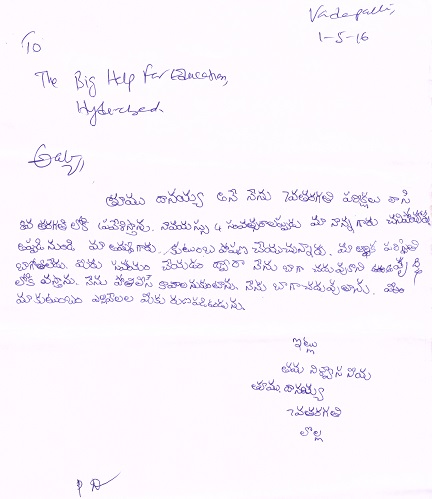 Vadapalli,
1-5-16
To
The Big Help For Education,
Hyderabad
సార్,
తూము దానయ్య అనే నేను 7వతరగతి పరీక్షలు రాసి
8వ తరగతి లోకి ప్రవేశిస్తాను. నావయస్సు 4 సంవత్సరాలప్పుడు మా నాన్న గారు చనిపోయారు
అప్పటి నుండి మా అమ్మగారు కుటుంబ పోషణ చేయుచున్నారు. మా ఆర్థిక పరిస్థితి
బాగోలేదు. మీరు సహాయం చేయడం ద్వారా నేను బాగా చదువుకుని వృద్ధి
లోకి వస్తాను. నేను పోలీస్ కావాలనుకుంటున్నాను. నేను బాగా చదువుతాను.
మా కుటుంబం ఎల్లవేలల మీకు రుణపడిఉండును.
ఇట్లు
తమ విశ్వాస నీయ
తూము దానయ్య
7వతరగతి
లొల్ల